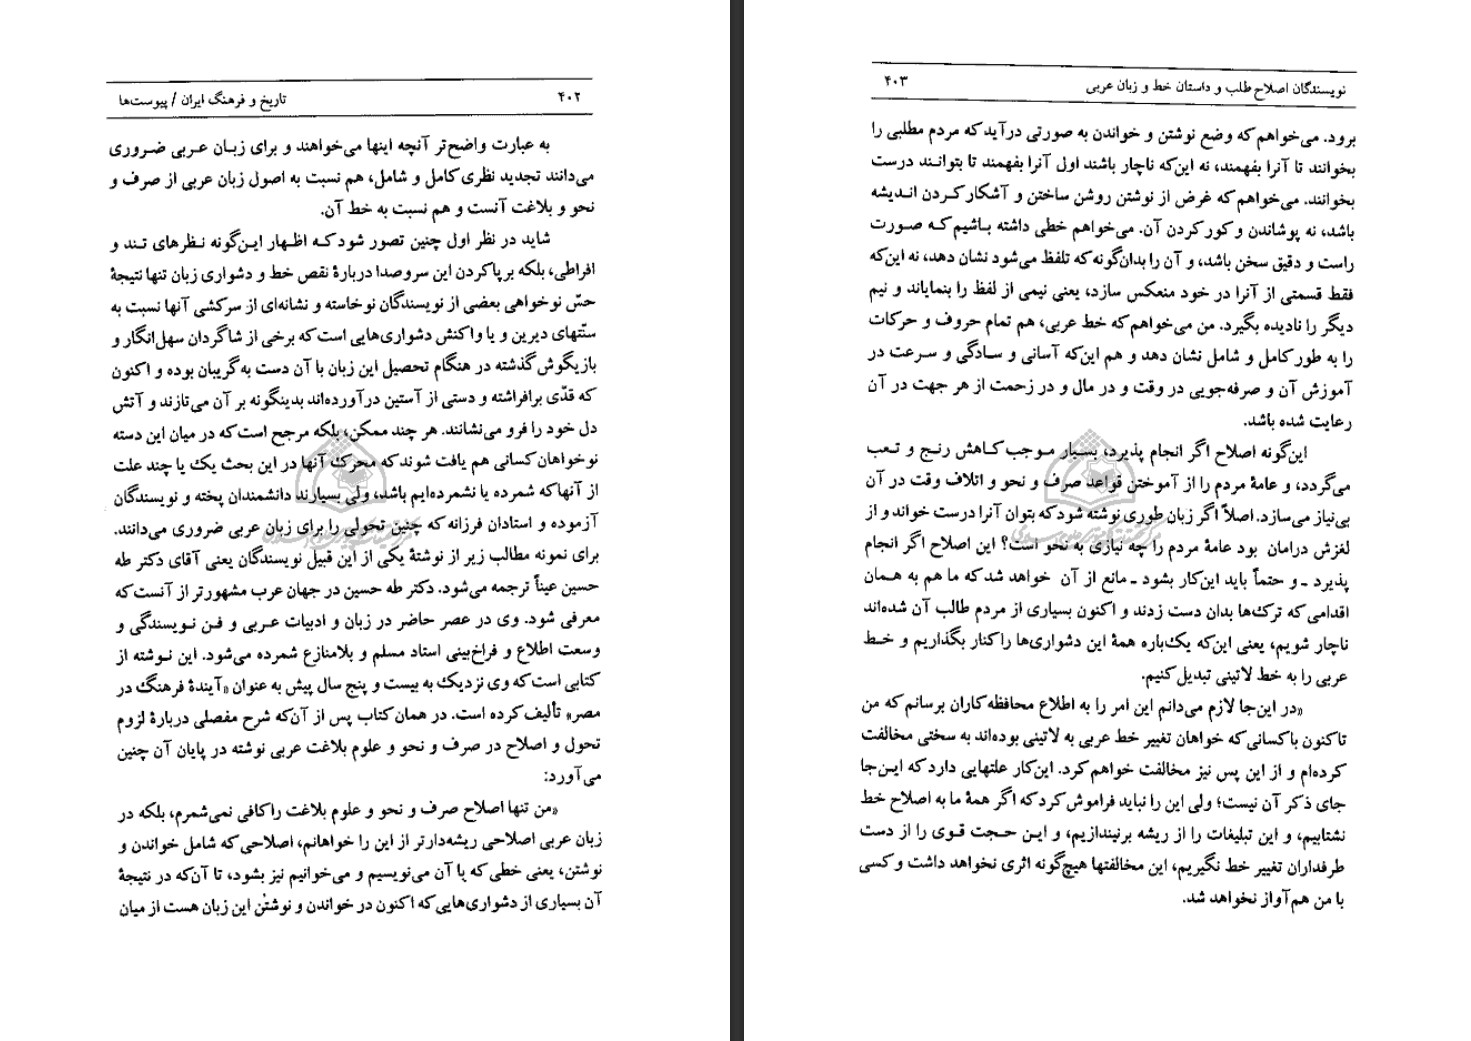 ۴۰۲ تاریخ و فرهنگ ایران / پیوست‌ها
به عبارت واضح‌تر آنچه اینها می‌خواهند و برای زبان عربی ضروری
می‌دانند تجدید نظری کامل و شامل، هم نسبت به اصول زبان عربی از صرف و
نحو و بلاغت آنست و هم نسبت به خط آن.
شاید در نظر اول چنین تصور شود که اظهار این‌گونه نظرهای تند و
افراطی، بلکه برپاکردن این سروصدا دربارهٔ نقص خط و دشواری زبان تنها نتیجهٔ
حسّ نوخواهی بعضی از نویسندگان نوخاسته و نشانه‌ای از سرکشی آنها نسبت به
سنّتهای دیرین و یا واکنش دشواری‌هایی است که برخی از شاگردان سهل‌انگار و
بازیگوش گذشته در هنگام تحصیل این زبان با آن دست به گریبان بوده و اکنون
که قدّی برافراشته و دستی از آستین درآورده‌اند بدینگونه بر آن می‌تازند و آتش
دل خود را فرو می‌نشانند. هر چند ممکن، بلکه مرجح است که در میان این دسته
نوخواهان کسانی هم یافت شوند که محرک آنها در این بحث یک یا چند علت
از آنها که شمرده یا نشمرده‌ایم باشد، ولی بسیارند دانشمندان پخته و نویسندگان
آزموده و استادان فرزانه که چنین تحولی را برای زبان عربی ضروری می‌دانند.
برای نمونه مطالب زیر از نوشتهٔ یکی از این قبیل نویسندگان یعنی آقای دکتر طه
حسین عیناً ترجمه می‌شود. دکتر طه حسین در جهان عرب مشهورتر از آنست که
معرفی شود. وی در عصر حاضر در زبان و ادبیات عربی و فن نویسندگی و
وسعت اطلاع و فراخ‌بینی استاد مسلم و بلامنازع شمرده می‌شود. این نوشته از
کتابی است که وی نزدیک به بیست و پنج سال پیش به عنوان «آیندهٔ فرهنگ در
مصر» تألیف کرده است. در همان کتاب پس از آن‌که شرح مفصلی دربارهٔ لزوم
تحول و اصلاح در صرف و نحو و علوم بلاغت عربی نوشته در پایان آن چنین
می‌آورد:
«من تنها اصلاح صرف و نحو و علوم بلاغت را کافی نمی‌شمرم، بلکه در
زبان عربی اصلاحی ریشه‌دارتر از این را خواهانم، اصلاحی که شامل خواندن و
نوشتن، یعنی خطی که با آن می‌نویسیم و می‌خوانیم نیز بشود، تا آن‌که در نتیجهٔ
آن بسیاری از دشواری‌هایی که اکنون در خواندن و نوشتن این زبان هست از میان
نویسندگان اصلاح طلب و داستان خط و زبان عربی ۴۰۳
برود. می‌خواهم که وضع نوشتن و خواندن به صورتی درآید که مردم مطلبی را
بخوانند تا آنرا بفهمند، نه این‌که ناچار باشند اول آنرا بفهمند تا بتوانند درست
بخوانند. می‌خواهم که غرض از نوشتن روشن ساختن و آشکار کردن اندیشه
باشد، نه پوشاندن و کور کردن آن. می‌خواهم خطی داشته باشیم که صورت
راست و دقیق سخن باشد، و آن را بدان‌گونه که تلفظ می‌شود نشان دهد، نه این‌که
فقط قسمتی از آنرا در خود منعکس سازد، یعنی نیمی از لفظ را بنمایاند و نیم
دیگر را نادیده بگیرد. من می‌خواهم که خط عربی، هم تمام حروف و حرکات
را به طور کامل و شامل نشان دهد و هم این‌که آسانی و سادگی و سرعت در
آموزش آن و صرفه‌جویی در وقت و در مال و در زحمت از هر جهت در آن
رعایت شده باشد.
این‌گونه اصلاح اگر انجام پذیرد، بسیار موجب کاهش رنج و تعب
می‌گردد، و عامهٔ مردم را از آموختن قواعد صرف و نحو و اتلاف وقت در آن
بی‌نیاز می‌سازد. اصلاً اگر زبان طوری نوشته شود که بتوان آنرا درست خواند و از
لغزش درامان بود عامهٔ مردم را چه نیازی به نحو است؟ این اصلاح اگر انجام
پذیرد ـ و حتماً باید این‌کار بشود ـ مانع از آن خواهد شد که ما هم به همان
اقدامی که ترک‌ها بدان دست زدند و اکنون بسیاری از مردم طالب آن شده‌اند
ناچار شویم، یعنی این‌که یک‌باره همهٔ این دشواری‌ها را کنار بگذاریم و خط
عربی را به خط لاتینی تبدیل کنیم.
«در این‌جا لازم می‌دانم این امر را به اطلاع محافظه‌کاران برسانم که من
تاکنون با کسانی که خواهان تغییر خط عربی به لاتینی بوده‌اند به سختی مخالفت
کرده‌ام و از این پس نیز مخالفت خواهم کرد. این‌کار علتهایی دارد که این‌جا
جای ذکر آن نیست؛ ولی این را نباید فراموش کرد که اگر همهٔ ما به اصلاح خط
نشتابیم، و این تبلیغات را از ریشه برنیندازیم، و این حجت قوی را از دست
طرفداران تغییر خط نگیریم، این مخالفتها هیچ‌گونه اثری نخواهد داشت و کسی
با من هم‌آواز نخواهد شد.